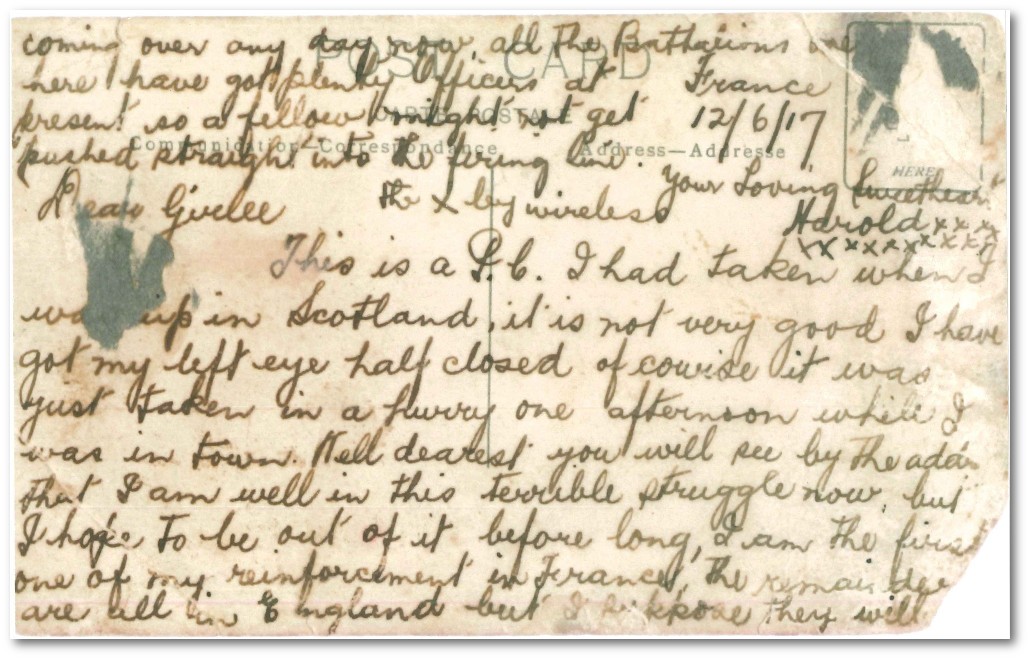 coming over any day now, all the Battalions over
here have got plenty Officers at
present so a fellow might not get
pushed straight into the firing line.
POST CARD
CARTE POSTALE
Communication—Correspondance
Address—Addresse
HERE
France
12/6/17
Your Loving Sweetheart
Harold x x x x
x x x x x x x x x x
Dear
the x by wireless
This is a P.C. I had taken when I
was up in Scotland, it is not very good I have
got my left eye half closed of course it was
just taken in a hurry one afternoon while I
was in town. Well dearest you will see by the
that I am well in this terrible struggle now, but
I hope to be out of it before long, I am the first
one of my reinforcement in France, the remainder
are all in England but I suppose they will